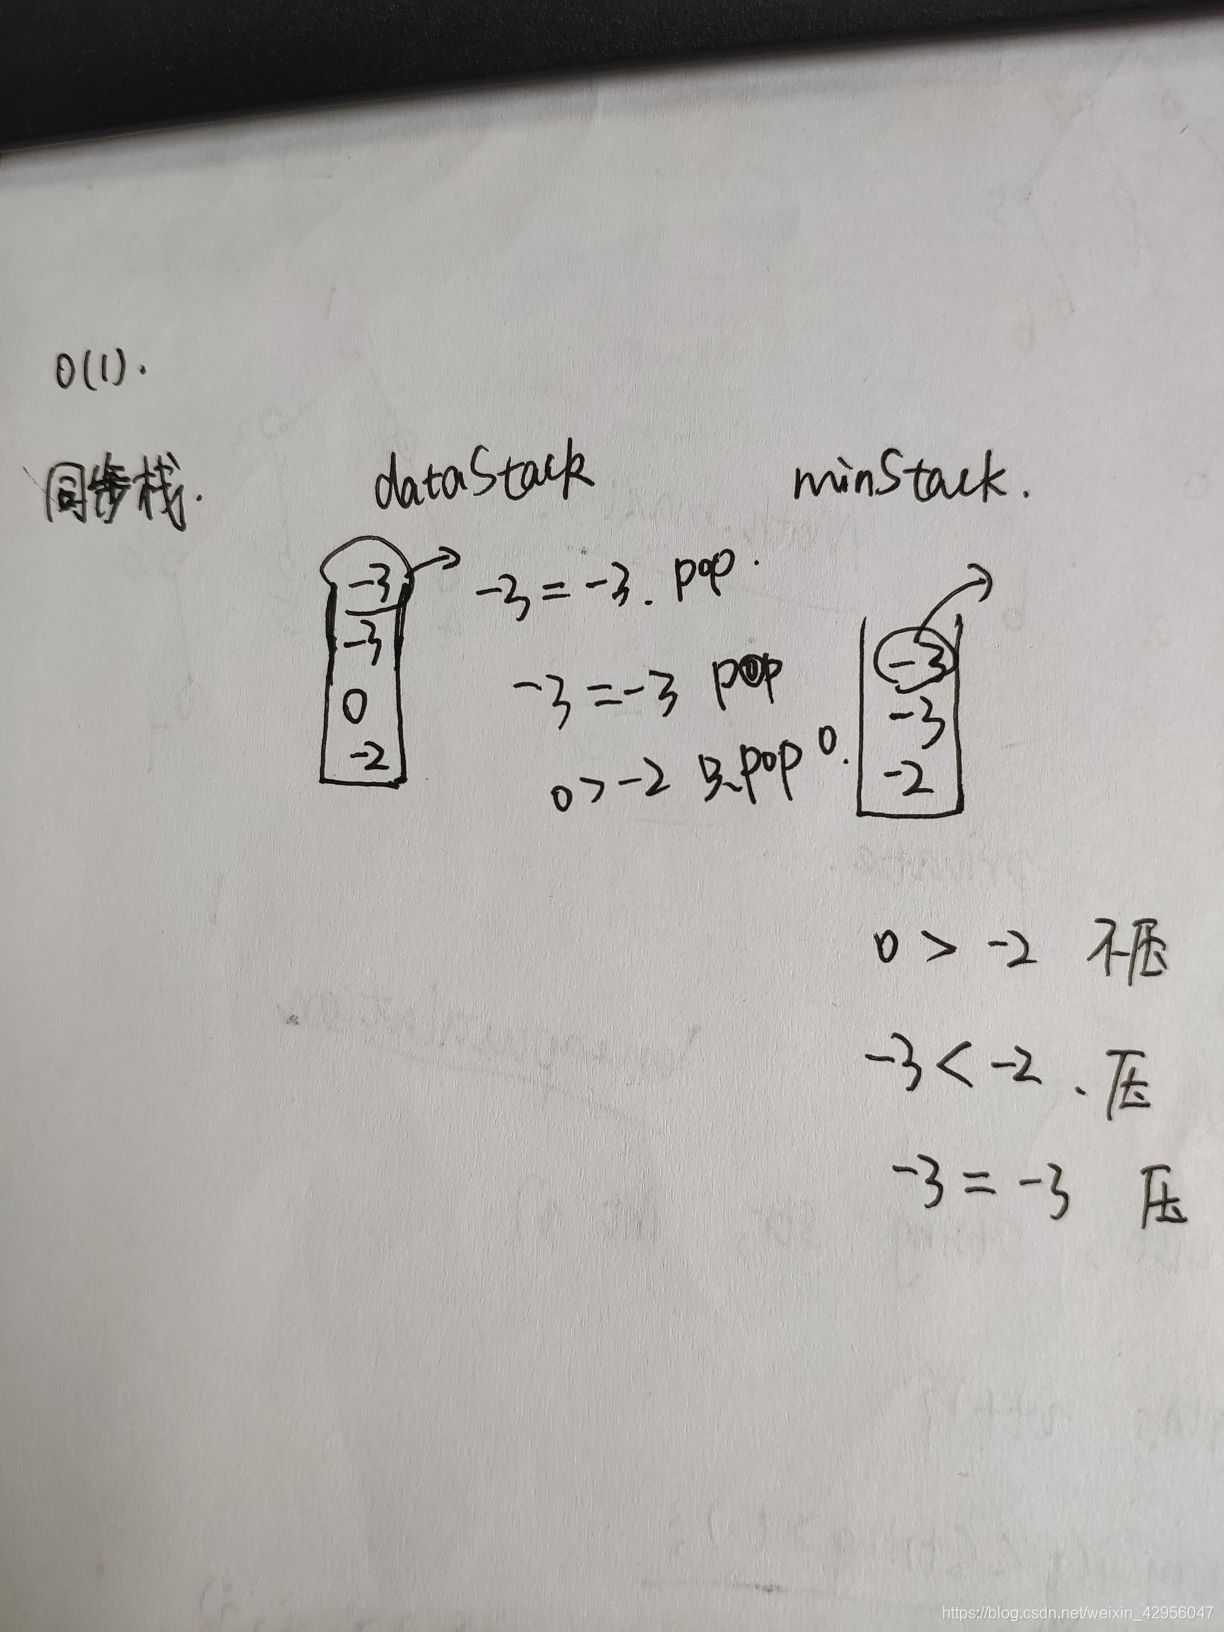 O(1).
同步栈. dataStack minStack.
-3
-3
0
-2
-3 = -3. pop.
-3 = -3 pop
0 > -2 只pop 0.
-3
-3
-2
0 > -2 不压
-3 < -2. 压
-3 = -3 压
https://blog.csdn.net/weixin_42956047